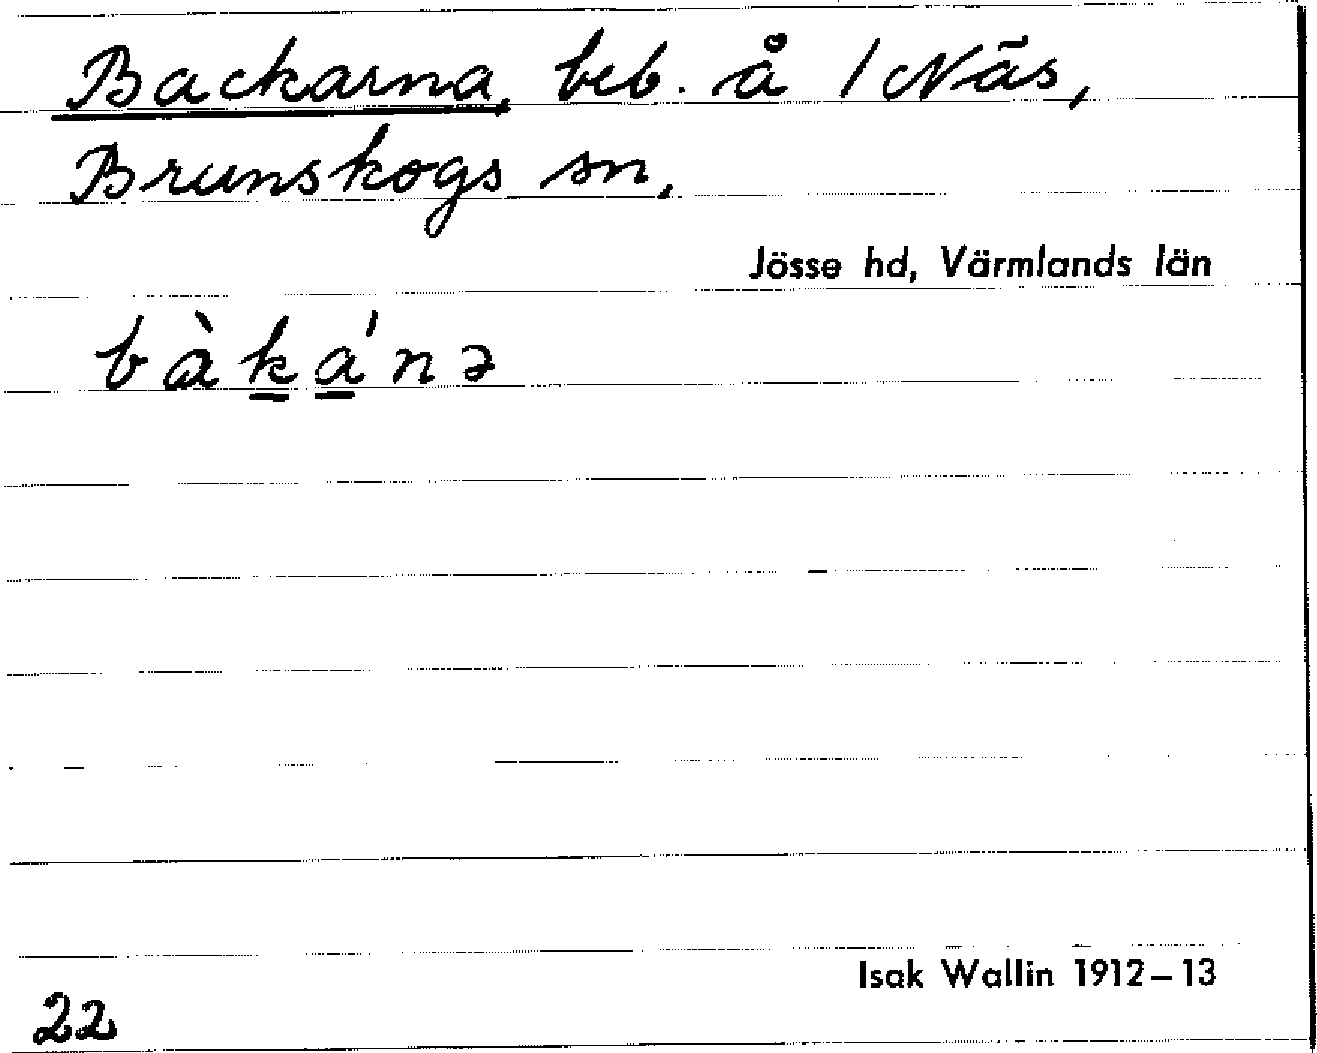 Backarna, beb. å 1 Näs,
Brunskogs sn,
Jösse hd, Värmlands län
bàká'nə
Isak Wallin 1912–13
22